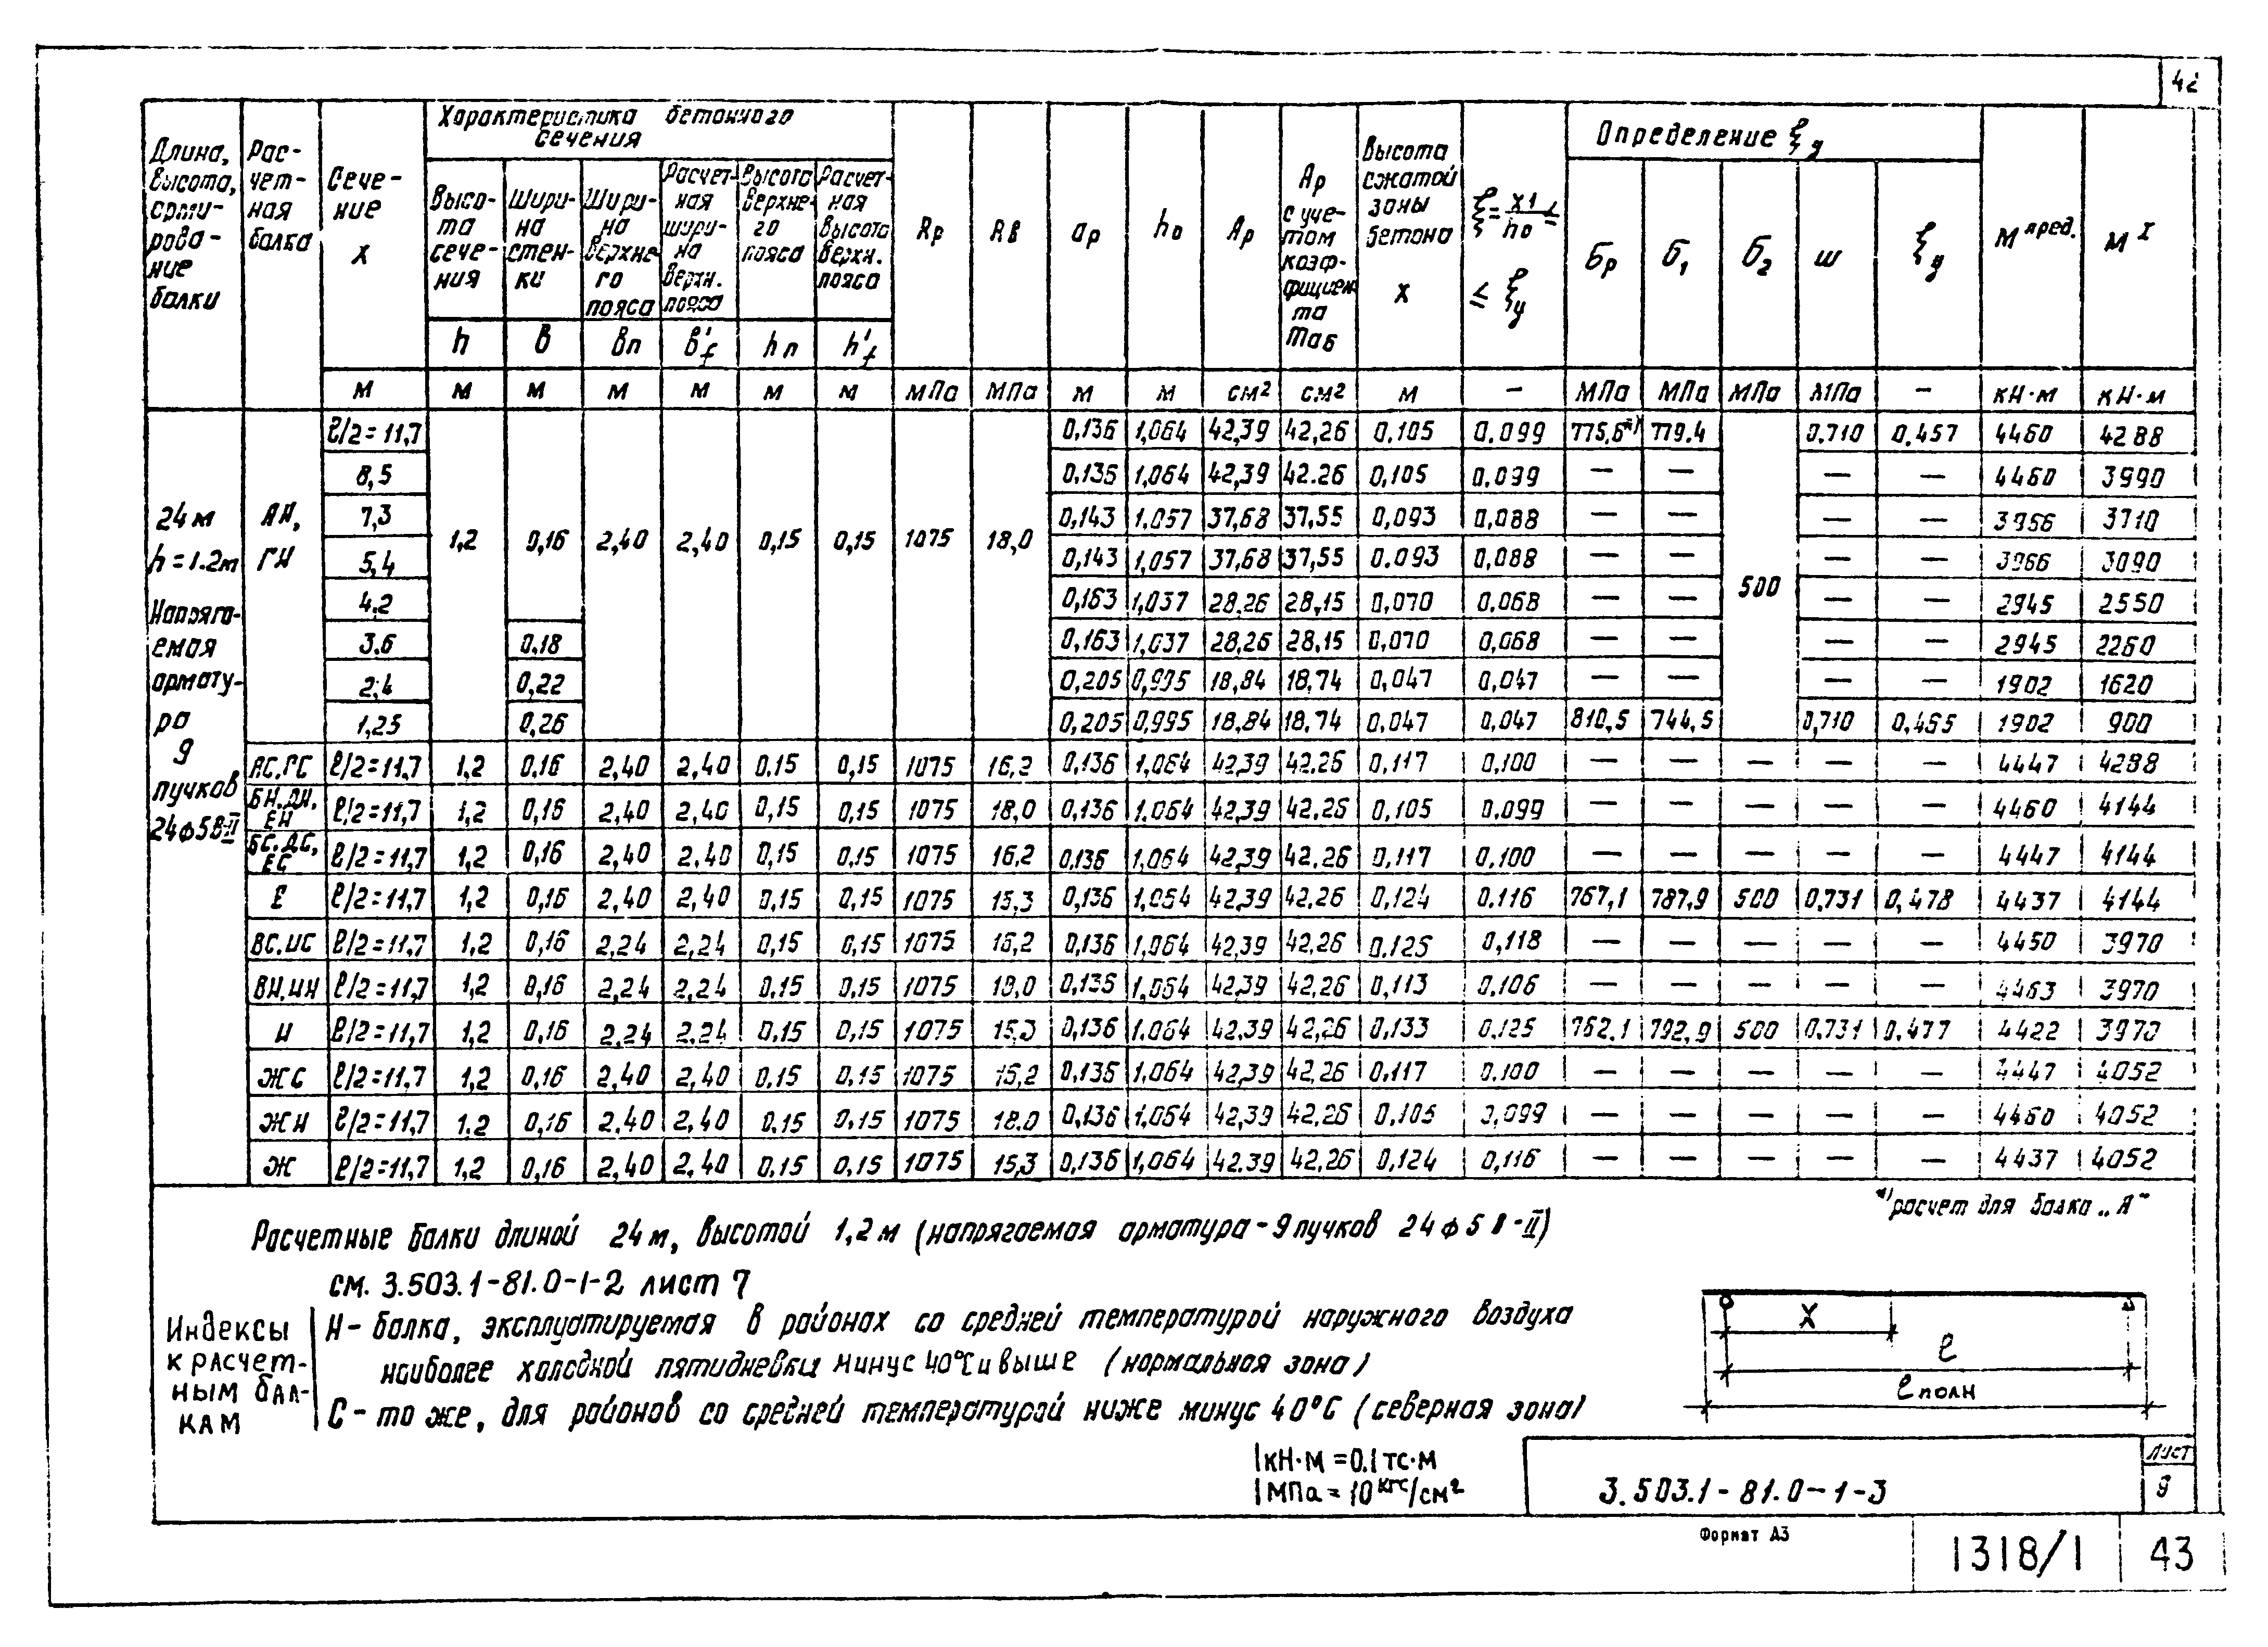 42
Длина, высота, армирование балки | Расчетная балка | Сечение x | Характеристика бетонного сечения | Rр | Rв | aр | h₀ | Aр | Aр с учетом коэффициента mаб | Высота сжатой зоны бетона x | ξ = x/h₀ ≤ ξy | Определение ξy | M пред. | M I
Высота сечения | Ширина стенки | Ширина верхнего пояса | Расчетная ширина верхн. пояса | Высота верхнего пояса | Расчетная высота верхн. пояса | бр | б₁ | б₂ | ω | ξy
h | в | вп | в'f | hп | h'f
м | м | м | м | м | м | м | МПа | МПа | м | м | см² | см² | м | — | МПа | МПа | МПа | МПа | — | кН·м | кН·м
24 м h = 1.2 м Напрягаемая арматура 9 пучков 24ф5В-II
АН, ГН | ℓ/2 = 11,7 | 1,2 | 0,16 | 2,40 | 2,40 | 0,15 | 0,15 | 1075 | 18,0 | 0,136 | 1,064 | 42,39 | 42,26 | 0.105 | 0.099 | 775,6*) | 779.4 | 500 | 0.710 | 0.457 | 4460 | 4288
8,5 | 0,136 | 1,064 | 42,39 | 42.26 | 0,105 | 0.099 | — | — | — | — | 4460 | 3990
7,3 | 0,143 | 1,057 | 37,68 | 37,55 | 0,093 | 0,088 | — | — | — | — | 3966 | 3710
5,4 | 0,143 | 1,057 | 37,68 | 37,55 | 0.093 | 0,088 | — | — | — | — | 3966 | 3090
4,2 | 0,163 | 1,037 | 28,26 | 28,15 | 0,070 | 0,068 | — | — | — | — | 2945 | 2550
3.6 | 0,18 | 0,163 | 1,037 | 28,26 | 28,15 | 0,070 | 0,068 | — | — | — | — | 2945 | 2260
2,4 | 0,22 | 0,205 | 0,995 | 18,84 | 18.74 | 0,047 | 0,047 | — | — | — | — | 1902 | 1620
1,25 | 0,26 | 0,205 | 0,995 | 18,84 | 18.74 | 0,047 | 0,047 | 810,5 | 744,5 | 0,710 | 0,455 | 1902 | 900
АС.ГС | ℓ/2 = 11,7 | 1,2 | 0,16 | 2,40 | 2,40 | 0.15 | 0,15 | 1075 | 16,2 | 0,136 | 1,064 | 42,39 | 42.26 | 0,117 | 0,100 | — | — | — | — | — | 4447 | 4288
БН.ДН. ЕН | ℓ/2 = 11,7 | 1,2 | 0,16 | 2,40 | 2,40 | 0,15 | 0,15 | 1075 | 18,0 | 0,136 | 1.064 | 42,39 | 42,26 | 0,105 | 0.099 | — | — | — | — | — | 4460 | 4144
БС.ДС, ЕС | ℓ/2 = 11,7 | 1,2 | 0,16 | 2,40 | 2,40 | 0,15 | 0.15 | 1075 | 16,2 | 0,136 | 1.064 | 42,39 | 42.26 | 0,117 | 0.100 | — | — | — | — | — | 4447 | 4144
Е | ℓ/2 = 11,7 | 1,2 | 0,16 | 2,40 | 2,40 | 0,15 | 0,15 | 1075 | 15,3 | 0,136 | 1.064 | 42,39 | 42.26 | 0,124 | 0.116 | 767,1 | 787,9 | 500 | 0,731 | 0,478 | 4437 | 4144
ВС.ИС | ℓ/2 = 11,7 | 1,2 | 0,16 | 2,24 | 2,24 | 0,15 | 0,15 | 1075 | 16,2 | 0,136 | 1,064 | 42,39 | 42,26 | 0.125 | 0,118 | — | — | — | — | — | 4450 | 3970
ВН.ИН | ℓ/2 = 11,7 | 1,2 | 0,16 | 2,24 | 2,24 | 0,15 | 0,15 | 1075 | 18,0 | 0,136 | 1,064 | 42,39 | 42,26 | 0,113 | 0.106 | — | — | — | — | — | 4463 | 3970
И | ℓ/2 = 11,7 | 1,2 | 0,16 | 2,24 | 2,24 | 0,15 | 0,15 | 1075 | 15,3 | 0,136 | 1.064 | 42,39 | 42,26 | 0,133 | 0.125 | 762.1 | 792,9 | 500 | 0.731 | 0.477 | 4422 | 3970
ЖС | ℓ/2 = 11,7 | 1,2 | 0,16 | 2,40 | 2,40 | 0.15 | 0,15 | 1075 | 16,2 | 0,136 | 1.064 | 42,39 | 42,26 | 0.117 | 0.100 | — | — | — | — | — | 4447 | 4052
ЖН | ℓ/2 = 11,7 | 1.2 | 0,16 | 2.40 | 2,40 | 0.15 | 0,15 | 1075 | 18.0 | 0,136 | 1,064 | 42,39 | 42.26 | 0.105 | 0,099 | — | — | — | — | — | 4460 | 4052
Ж | ℓ/2 = 11,7 | 1,2 | 0,16 | 2,40 | 2,40 | 0.15 | 0,15 | 1075 | 15,3 | 0,136 | 1,064 | 42.39 | 42,26 | 0,124 | 0,116 | — | — | — | — | — | 4437 | 4052
*) расчет для балки „А"
Расчетные балки длиной 24 м, высотой 1,2 м (напрягаемая арматура - 9 пучков 24ф5В-II)
см. 3.503.1-81.0-1-2 лист 7
Индексы к расчетным балкам
Н - балка, эксплуатируемая в районах со средней температурой наружного воздуха
наиболее холодной пятидневки минус 40°С и выше (нормальная зона)
С - то же, для районов со средней температурой ниже минус 40°С (северная зона)
x
ℓ
ℓ полн
1 кН·м = 0.1 тс·м
1 МПа = 10 кгс/см²
3.503.1-81.0-1-3
Лист
9
Формат А3
1318/1
43